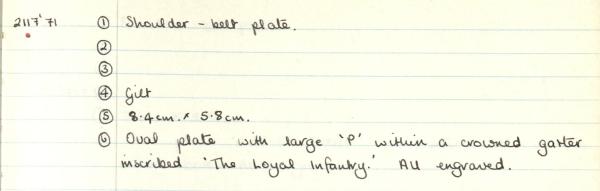 2117'71 ① Shoulder - belt plate.
②
③
④ Gilt
⑤ 8.4cm. x 5.8cm.
⑥ Oval plate with large 'P' within a crowned garter
inscribed 'The Loyal Infantry.' All engraved.